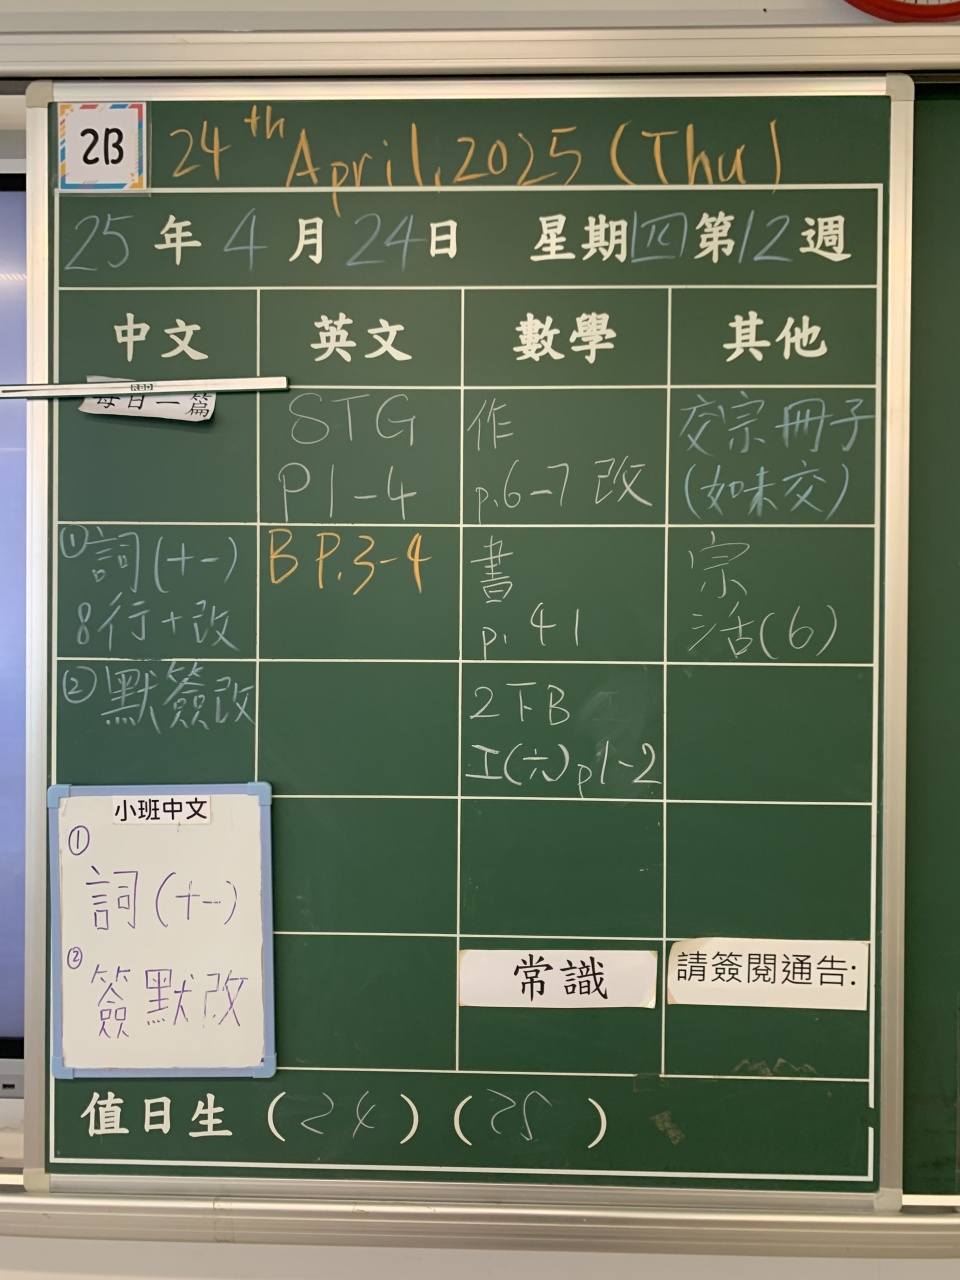 2B
24th April, 2025 (Thu)
25年4月24日 星期四第12週
中文 英文 數學 其他
RBD
每日一篇
STG
P1-4
作
p.6-7 改
交宗冊子
(如未交)
① 詞(十一)
8行+改
B P.3-4
書
p. 41
宗
活(6)
② 默簽改
2下B
工(六)p1-2
小班中文
①
詞(十一)
②
簽默改
常識
請簽閱通告:
值日生 (24) (25)